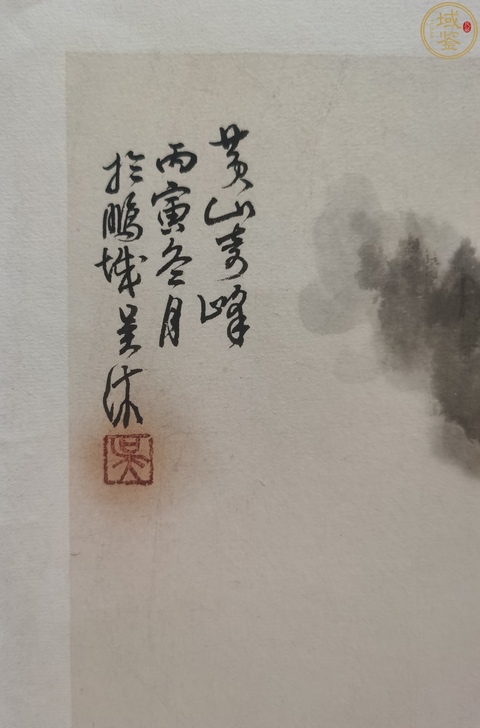 黄山奇峰
丙寅冬月
於鹏城吴沐
吴
域鉴